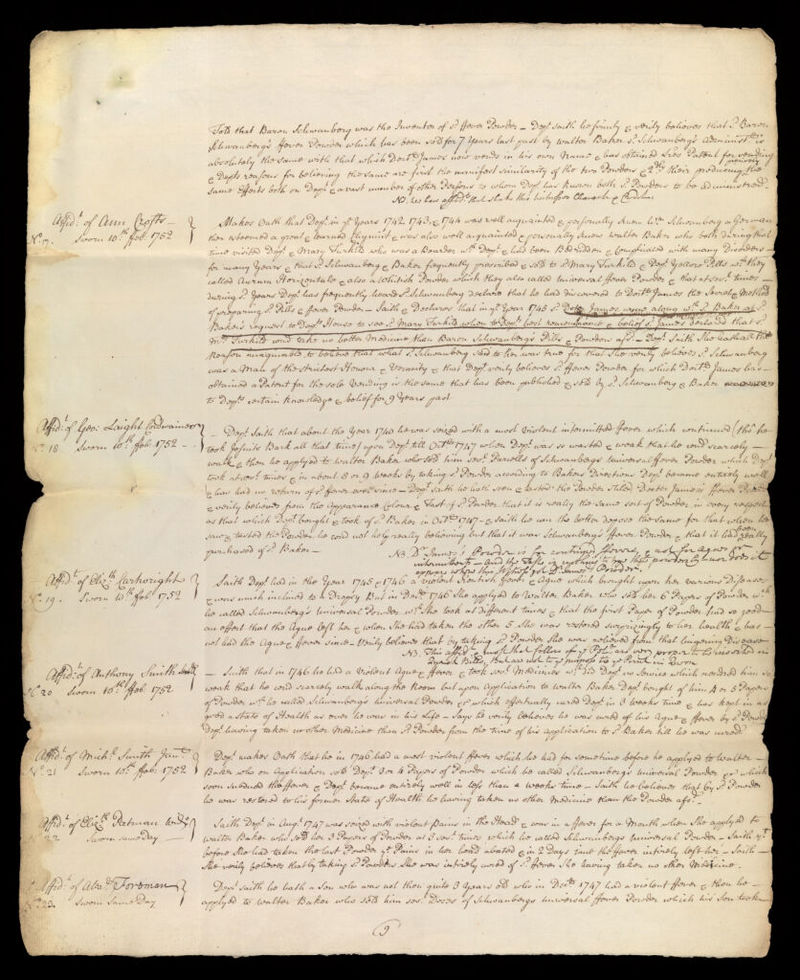 Told that Baron Schwanberg was the Inventor of sd. ffever Powder – Dept. saith he firmly & verily believes that sd. Baron
Schwanberg's ffever Powder which has been sold for 7 Years last past by Walter Baker sd. Schwanberg's Administr. is
absolutely the same with that which Doctr. James now vends in his own Name & has obtained his Patent for vending
& Depts reasons for believing the same are first the manifest similarity of the two Powders & 2dly their producing the
same Effects both on Dept. & a vast number of other Persons to whom Dept. has known both sd. Powders to be administred.
Affidt. of Ann Crofts –
No. 17. Sworn 10th. ffeb. 1752
Makes Oath that Dept. in ye. Years 1742 1743 & 1744 was well acquainted & personally knew Wm. Schwanberg a German
then esteemed a great & learned Chymist & was also well acquainted & personally knew Walter Baker who both during that
time visited Dept. & Mary Turkild who was a Boarder wth. Dept. & had been Bedridden & complicated with many Disorders –
for many Years & that sd. Schwanberg & Baker frequently prescribed & sold to sd. Mary Turkild & Dept. Yellow Pills wch. they
called Aurum Horizontale & also a Whitish Powder which they also called universal ffever Powder & that at sevl. times –
during sd. Years Dept. has frequently heard sd. Schwanberg declare that he had discovered to Doctr. James the Secret & Method
of preparing sd. Pills & ffever Powder – Saith & Declares that in ye. Year 1745 sd. Doctr. James came along wth. sd. Baker at sd.
Baker's request to Depts. House to see sd. Mary Turkild when to Depts. best remembrance & belief sd. James declared that sd.
Mrs. Turkild coud take no better Medicine than Baron Schwanberg's Pills & Powders afsd. – Dept. saith She hath all the
Reason imaginable to believe that what sd. Schwanberg said to her was true for that She verily believes sd. Schwanberg
was a Man of the Strictest Honour & Veracity & that Dept. verily believes sd. ffever Powder for which Doctr. James has
obtained a Patent for the sole Vending is the same that has been published & sold by sd. Schwanberg & Baker
to Depts. certain knowledge & belief for 9 Years past
Affidt. of Geo. Laight Cordwainer
No. 18 Sworn 10th. ffeb. 1752 –
– Dept. Saith that about the Year 1740 he was seized with a most violent intermitted ffever which continued (tho' he
took Jesuits Bark all that time) upon Dept. till Octr. 1747 when Dept. was so wasted & weak that he coud scarcely –
walk & then he applyed to Walter Baker who sold him sevl. Parcells of Schwanberg's universal ffever Powder which Dept.
took at sevl. times & in about 8 or 9 weeks by taking sd. Powder according to Bakers Directions Dept. became entirely well
& has had no return of sd. ffever ever since – Dept. saith he hath seen & tasted the Powder Stiled Doctor James's ffever Powder
& verily believes from the Appearance Colour & Tast of sd. Powder that it is really the same sort of Powder in every respect
as that which Dept. bought & took of sd. Baker in Octr. 1747 – & saith he can the better depose the same for that when he
saw & tasted the Powder he coud not help really believing but that it was Schwanberg's ffever Powder & that it had been really
purchased of sd. Baker –
NB Dr. James's Powder is for continual ffevers & not for agues or
intermittents
Affidt. of Elizth. Cartwright
No. 19. Sworn 10th. ffeb. 1752
Saith Dept. had in the Year 1745 & 1746 a violent Scorbut ffever & Ague which brought upon her various Diseases
& was much inclined to a Dropsy But in Decr. 1746 She applyed to Walter Baker who sold her 6 Papers of Powder wch.
he called Schwanberg's Universal Powder wch. She took at different times & that the first Paper of Powder had so good
an effect that the Ague left her & when She had taken the other 5 She was restored surprizingly to her health & has –
not had the Ague & ffever since – Verily believes that by taking sd. Powder She was relieved from that lingering Disease
Affidt. of Anthony Smith
No. 20 Sworn 10th. ffeb. 1752
– Saith that in 1746 he had a violent Ague & ffever & took sevl. Medicines wch. did Dept. no Service which rendered him so
weak that he coud scarcely walk along the Room but upon Application to Walter Baker Dept. bought of him 4 or 5 Papers
of Powder wch. he called Schwanberg's Universal Powder & which effectually cured Dept. in 3 weeks time & has kept in as
good a state of Health as ever he was in his Life – Says he verily believes he was cured of his Ague & ffever by sd. Powder
Dept. having taken no other Medicine than sd. Powder from the time of his application to sd. Baker till he was cured
Affidt. of Michl. Smith Junr.
No. 21 Sworn 10th. ffeb. 1752
Dept. makes Oath that he in 1746 had a most violent ffever which he had for sometime before he applyed to Walter –
Baker who on Application sold Dept. 3 or 4 Papers of Powder which he called Schwanberg's Universal Powder & which
soon subdued the ffever & Dept. became entirely well in less than 2 weeks time – Saith he believes that by sd. Powder
he was restored to his former State of Health he having taken no other Medicine than the Powder afsd.
Affidt. of Elizth. Putman
22 Sworn same Day
Saith Dept. in Augt. 1747 was seized with violent Pains in the Head & was in a ffever for a Month when She applyed to
Walter Baker who sold her 3 Papers of Powder at 3 sevl. times which he called Schwanbergs Universal Powder & Saith yt.
before She had taken the last Powder ye. Pains in her head abated & in 2 Days time the ffever intirely left her – Saith –
She verily believes that by taking sd. Powders She was intirely cured of sd. ffever She having taken no other Medicine.
Affidt. of Alexr. Foreman
No. 23 Sworn Same Day
Dept. saith he hath a Son who was not then quite 3 Years old who in Decr. 1747 had a violent ffever & then he –
applyed to Walter Baker who sold him sevl. Doses of Schwanbergs universal ffever Powder which his Son took
9